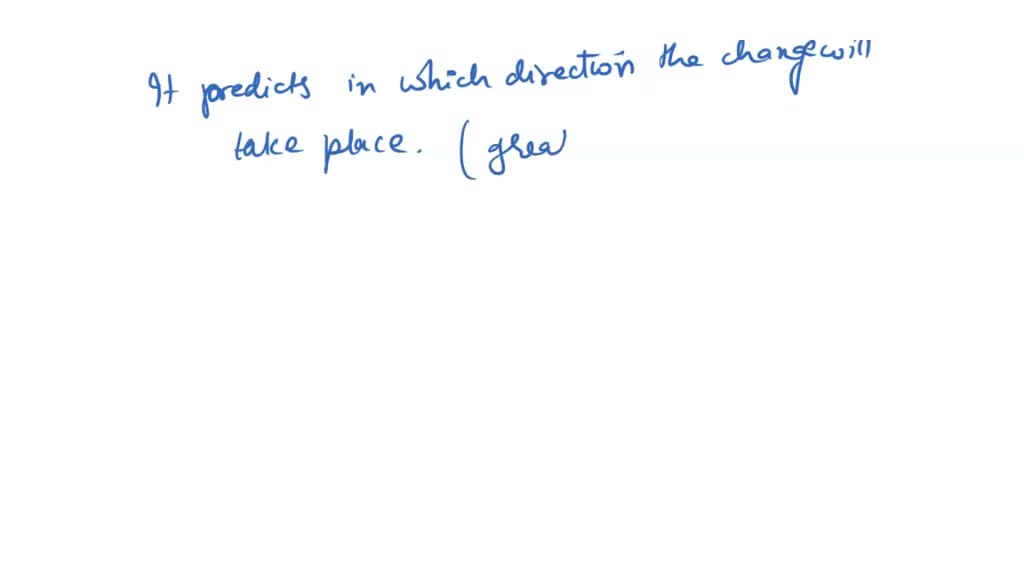 It predicts in which direction the change will
take place. (grea